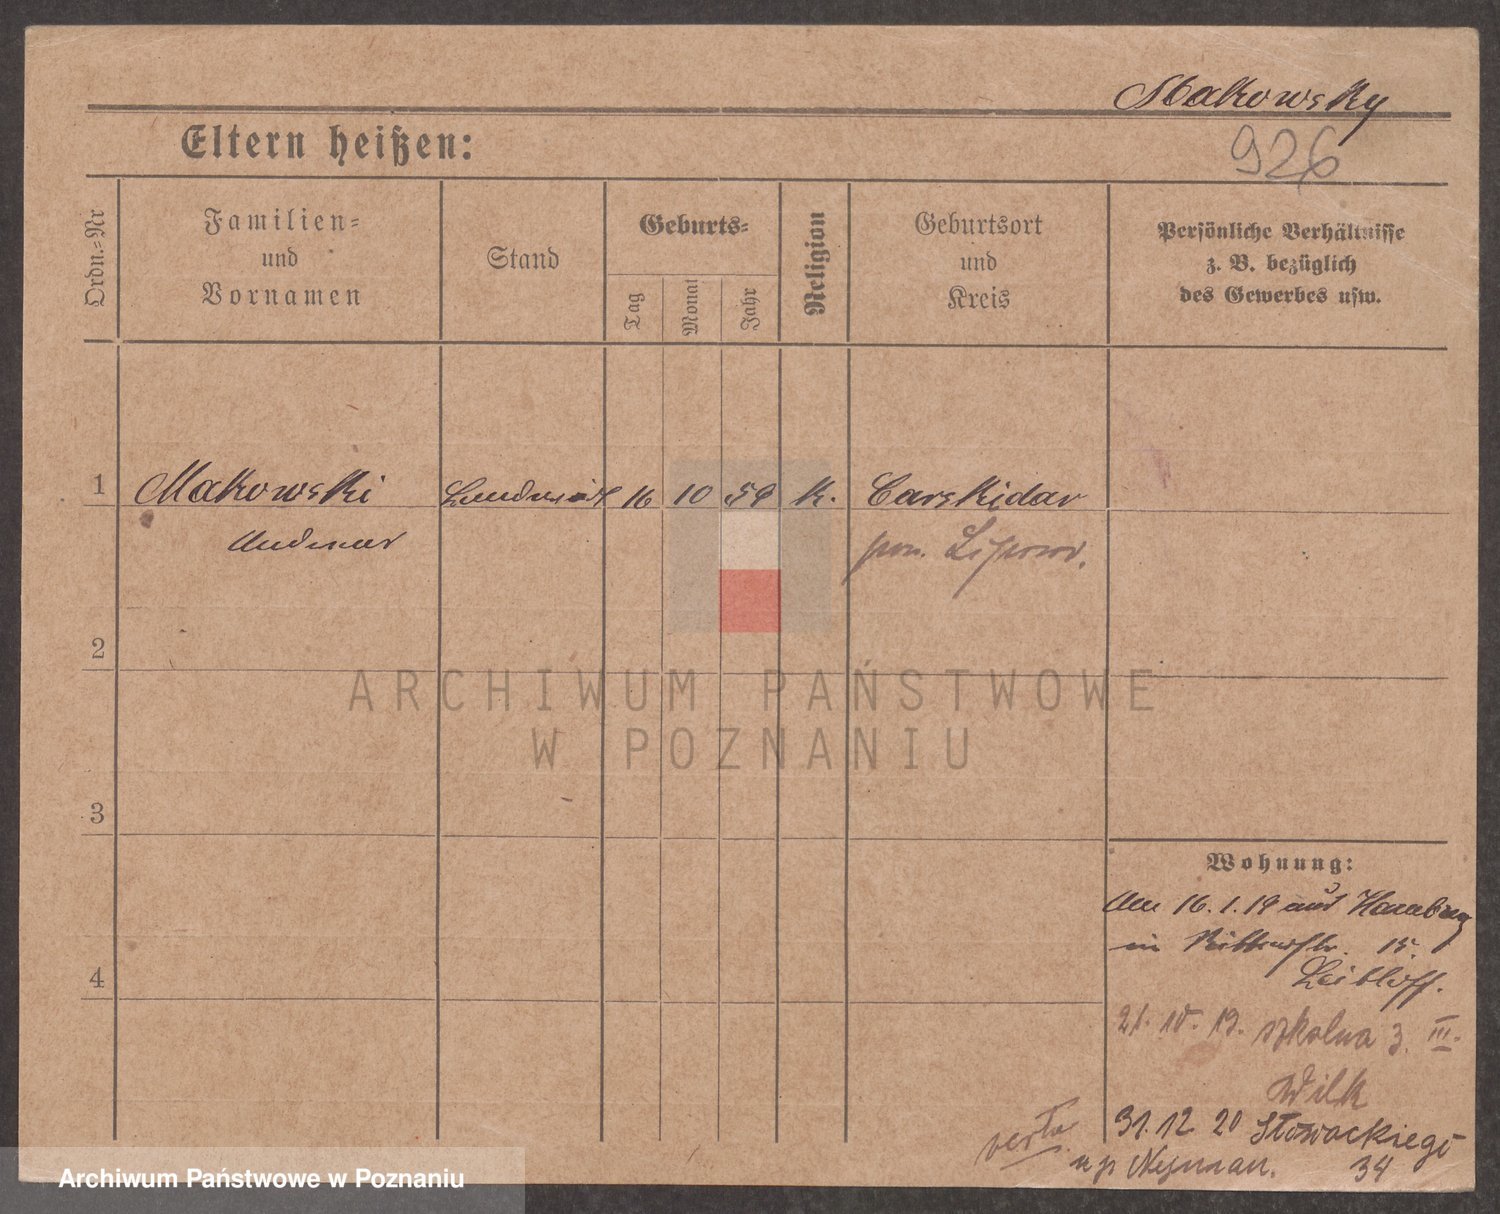 Makowsky
926
Eltern heißen:
Ordn.=Nr
Familien=
und
Vornamen
Stand
Geburts=
Tag
Monat
Jahr
Religion
Geburtsort
und
Kreis
Persönliche Verhältnisse
z. B. bezüglich
des Gewerbes usw.
1
Makowski
Landwirt 16 10 59 K.
Carskidar
pow. Lipnow.
2
ARCHIWUM PAŃSTWOWE
W POZNANIU
3
Wohnung:
Am 16.1.19 aus Hamburg
in Ritterstr. 15.
4
21. 10. 19. szkolna 3. III.
Wilk
31.12 20 Słowackiego
verte
u p Neyman. 34
Archiwum Państwowe w Poznaniu